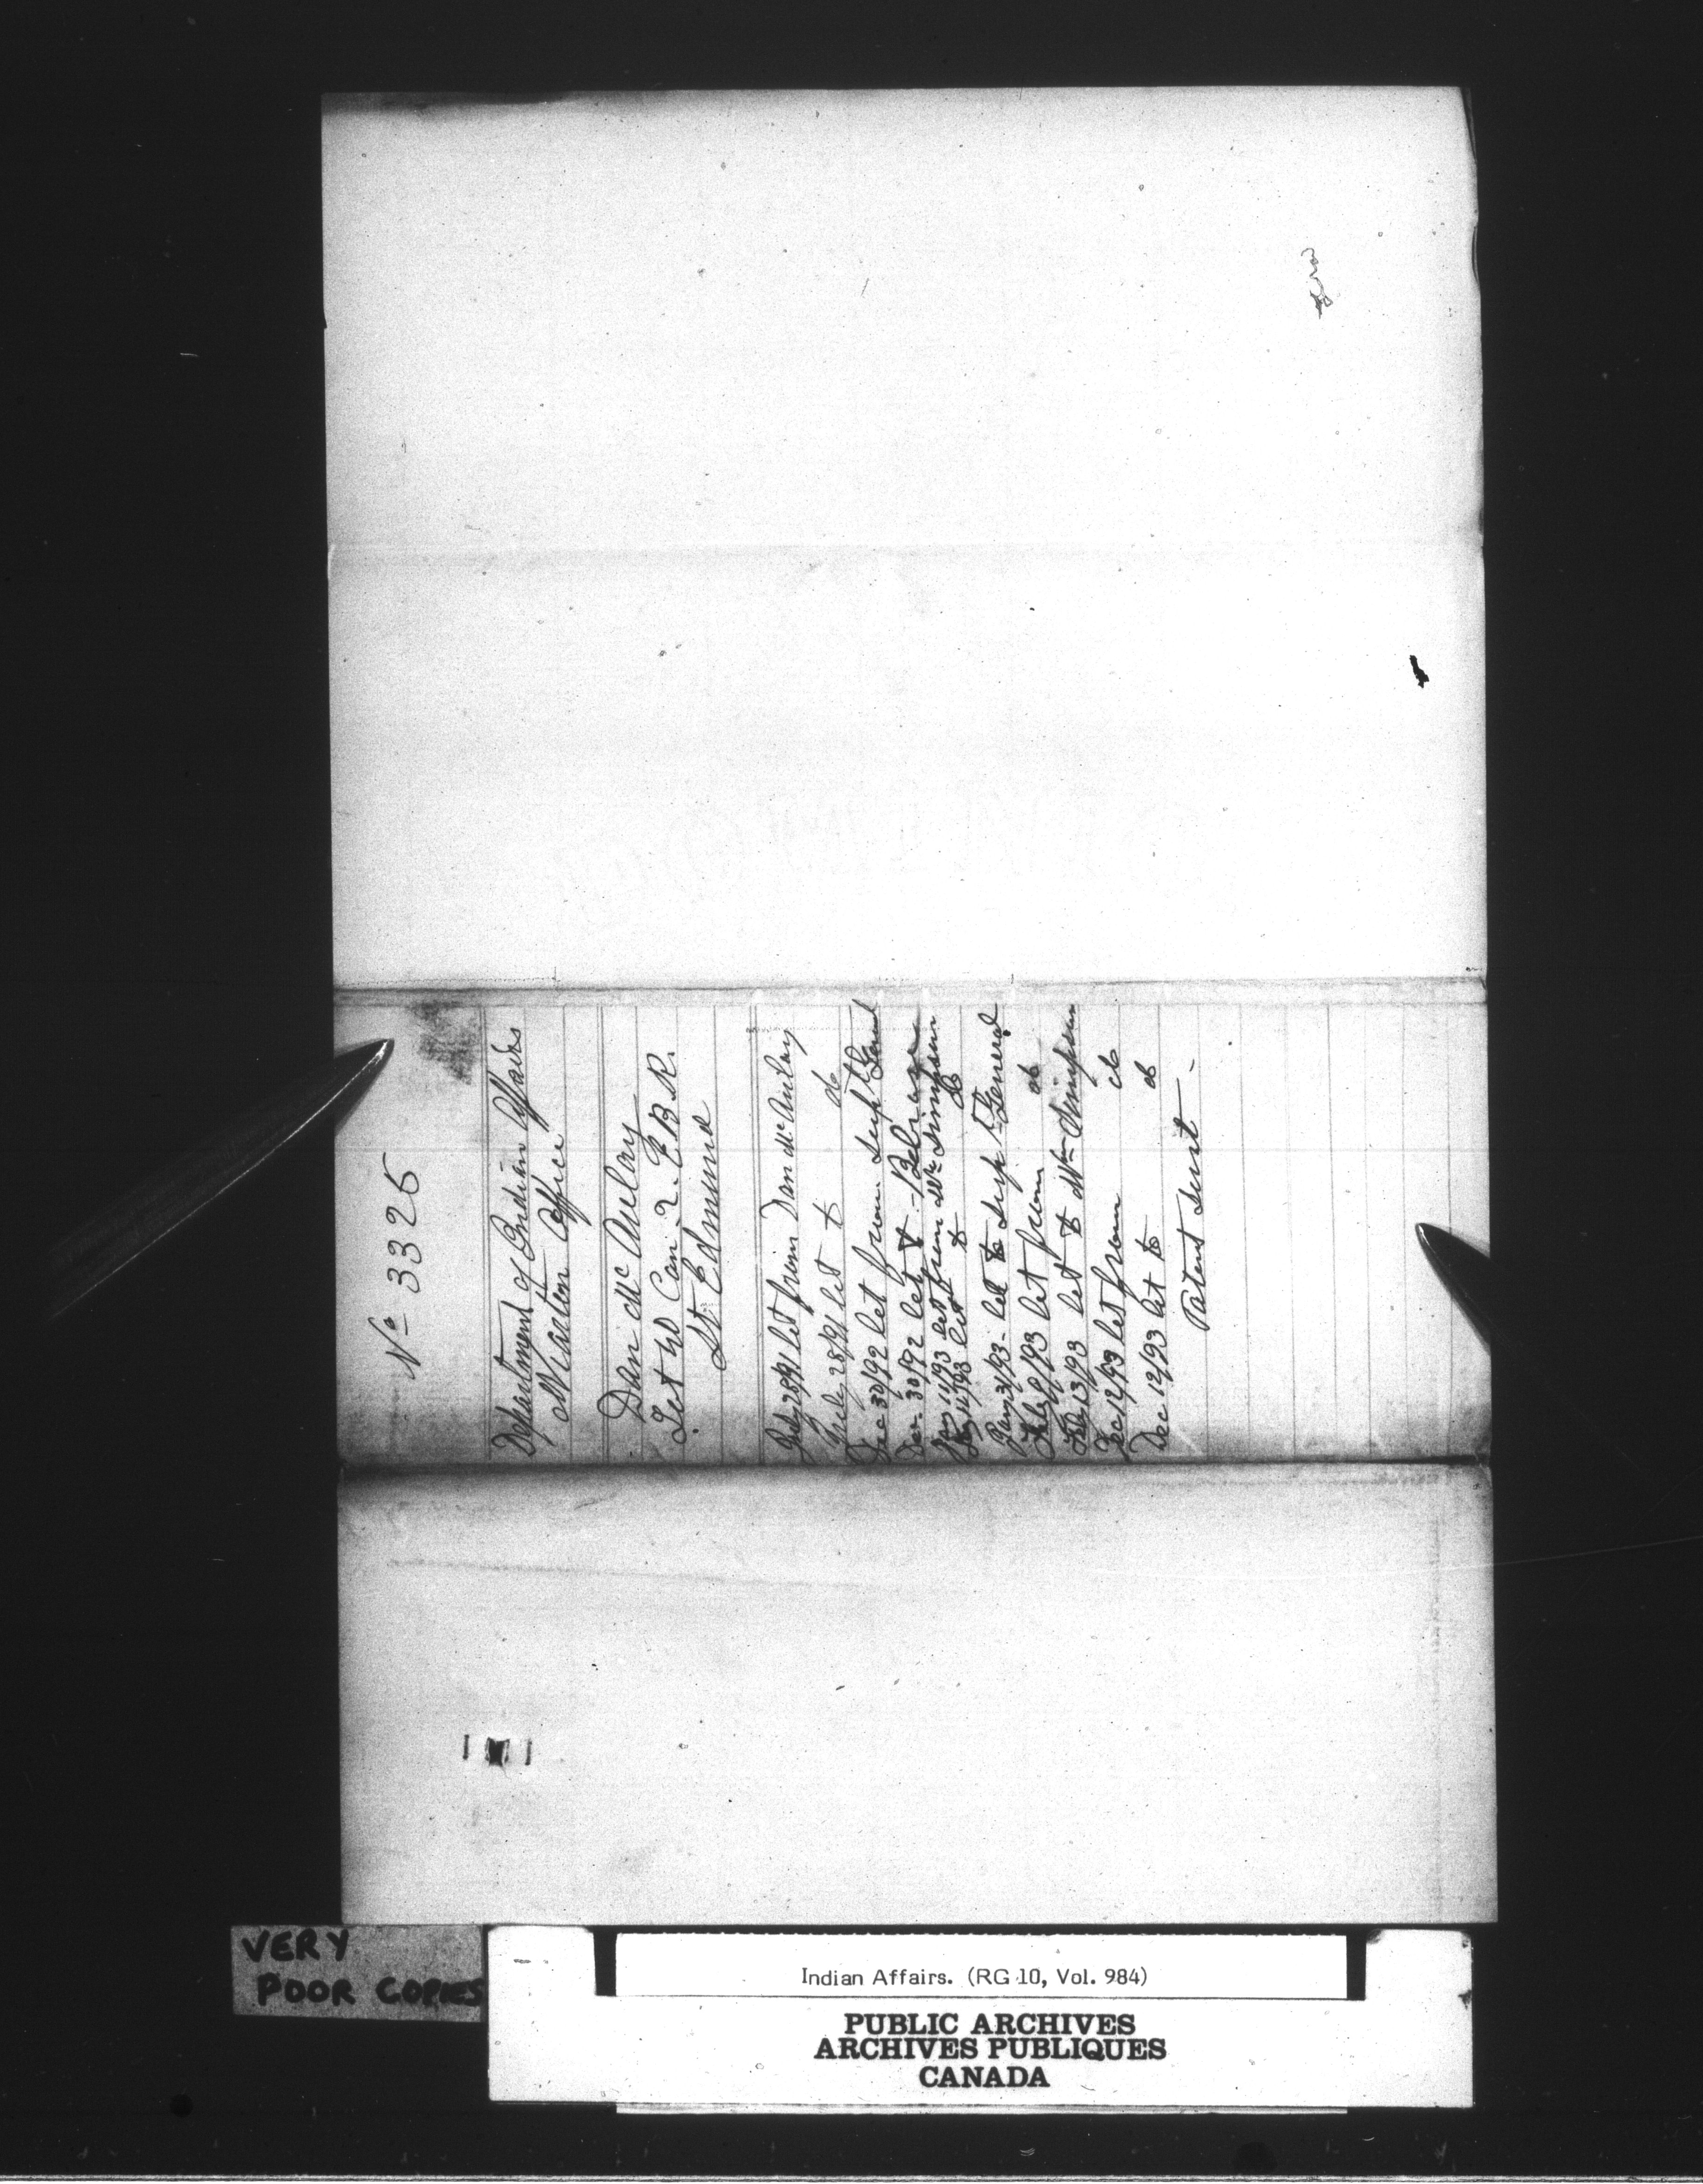 No 3326
Department of Indian Affairs
Wiarton Office
Dan McAulay
Lot 40 Con. 2. E B R.
St. Edmund
July 28/91 let from Dan McAulay
July 28/91 let to do
Dec 30/92 let from Supt Genl
Dec. 30/92 let to
Jany 11/93 let from Wm Simpson
Jany 12/93 let to do
Jany 31/93 let to Supt General
Feby /93 let from do
Feby 13/93 let to Wm Simpson
Dec 12/93 let from do
Dec 12/93 let to do
Patent sent -
VERY
POOR COPIES
Indian Affairs. (RG 10, Vol. 984)
PUBLIC ARCHIVES
ARCHIVES PUBLIQUES
CANADA